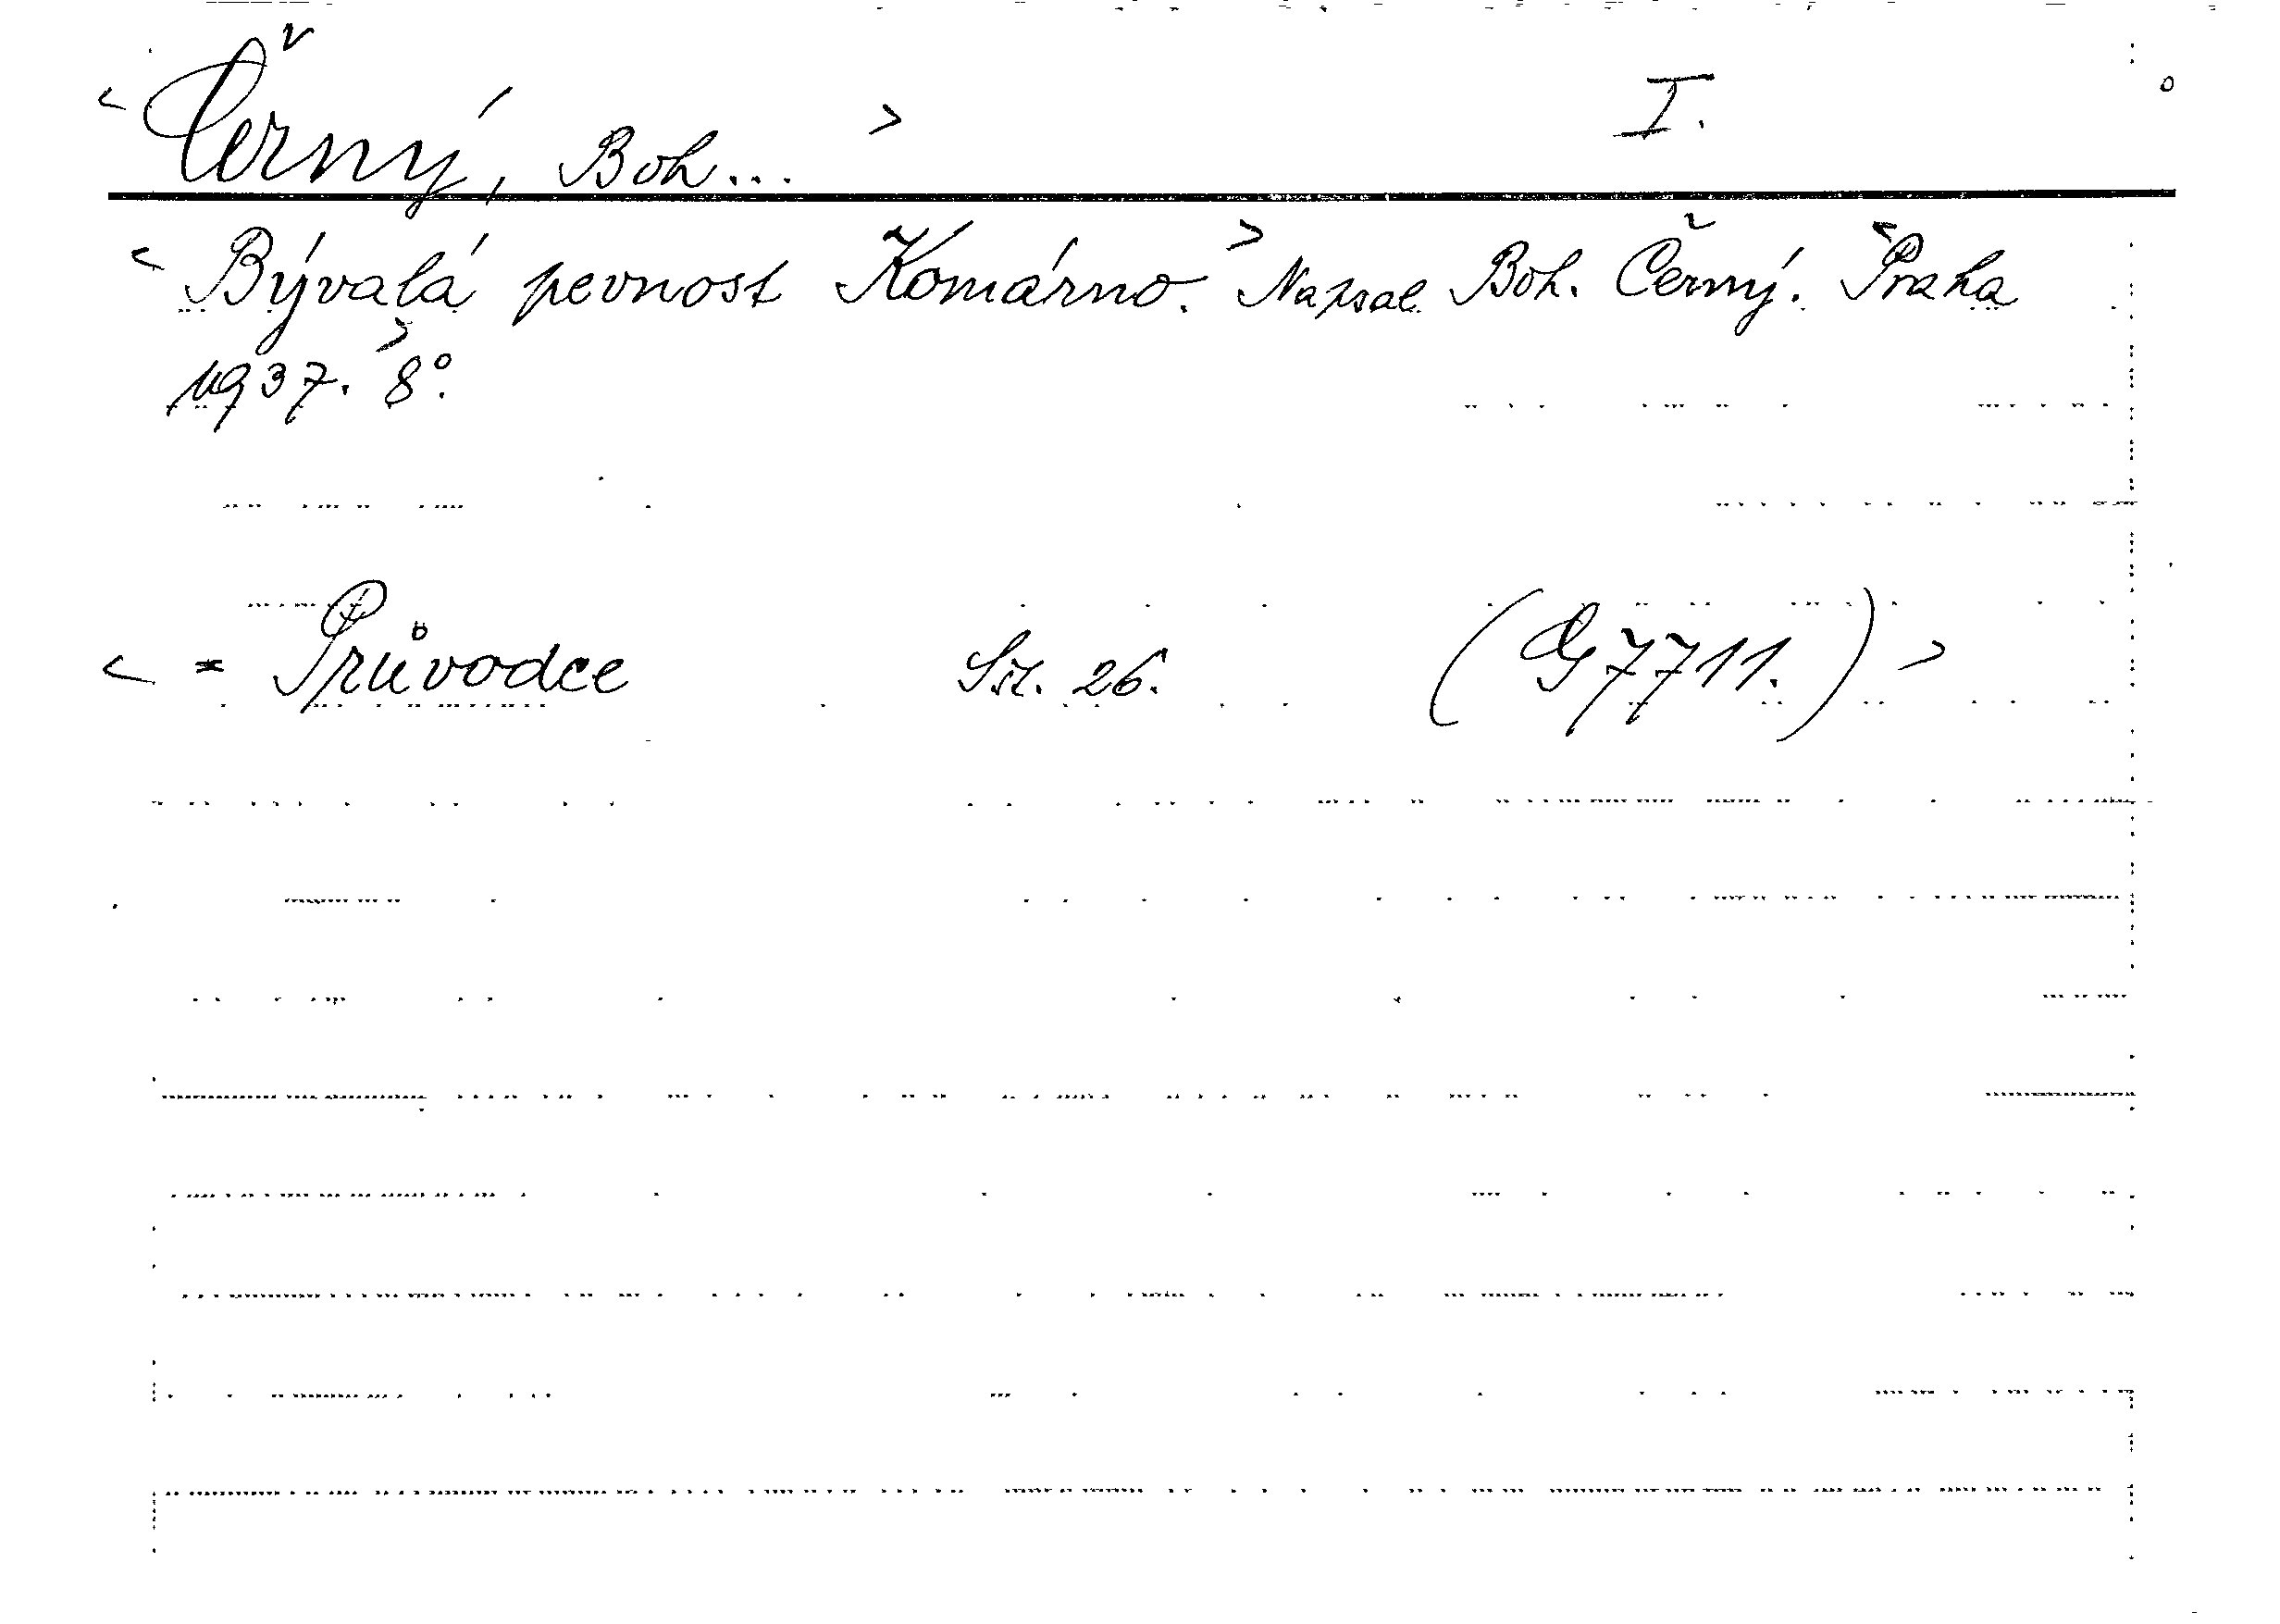 < Černý, Boh... > I.
< Bývalá pevnost Komárno. > Napsal Boh. Černý. < Praha
1937. > 8°.
< = Průvodce Sv. 26. (G 7711.) >